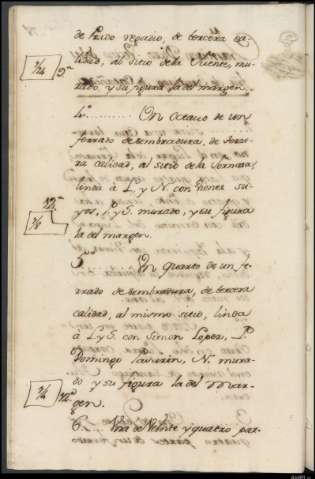 de Prado regadio, de tercera ca-
lidad, al sitio de la Fuente, mu-
rado, y su figura la del margen.
4.......... Un Octavo de un
ferrado de sembradura, de terce-
ra calidad, al sitio de la
linda à L. y N. con vienes su-
yos, P. y S. murado, y su figura
la del margen.
5 Un quarto de un fe-
rrado de sembradura, de tercera
calidad, al mismo sitio, linda
à L. y S. con Simon Lopez, P.
Domingo N. mura-
do y su figura la del Mar-
gen.
6.... Una de Veinte y quatro par-